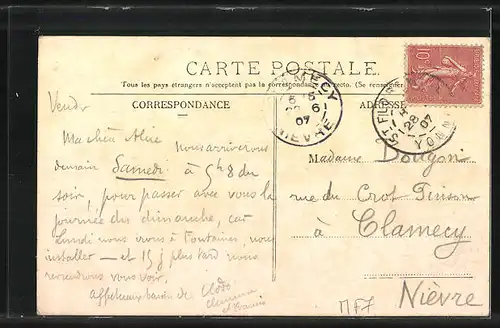 CARTE POSTALE
Tous les pays étrangers n'acceptent pas la correspondance au recto. (Se renseigner
CORRESPONDANCE
ADRESSE
CLAMECY
NIEVRE
07
ST FL
28
07
YONNE
10
Vendr
Ma chère
nous arriverons
demain Samedi à 5h 8 du
soir, pour passer avec vous la
journée du dimanche, car
Lundi nous irons à Fontaines, nous
installer — et 15 j plus tard nous
reviendrons vous voir.
de Clodo
Clemence
Madame Dougoni
rue du Crot Pinson
à Clamecy
Nièvre
MF7